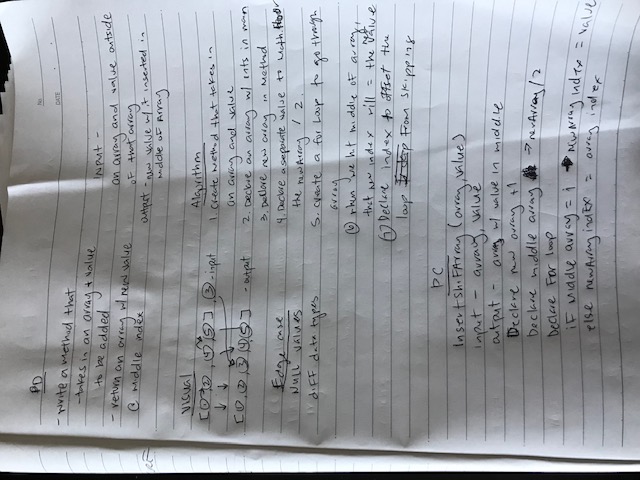 No.
DATE
PD
- write a method that
- takes in an array & value
to be added
- return an array w/ new value
@ middle index
Input -
an array and value outside
of that array
output new value w/ it inserted in
middle of Array
Visual
[①,②,④,⑤] , ③ - input
[①,②,③,④,⑤] - output
Edge case
Null values
diff data types
Algorithm
1. create method that takes in
an array and value
2. Declare an array w/ ints in main
3. Declare new array in method
4. Declare a separate value to Math floor
the newArray / 2.
5. create a for loop to go through
array
⑥ when we hit middle of array,
that new index will = the value
⑦ Declare index to offset the
loop from skipping
PC
InsertShiftArray (array, value)
input - array, value
output - array w/ value in middle
Declare new array +1
Declare middle array → newArray/2
Declare For loop
if middle array = i → newArray index = value
else newArray index = array index